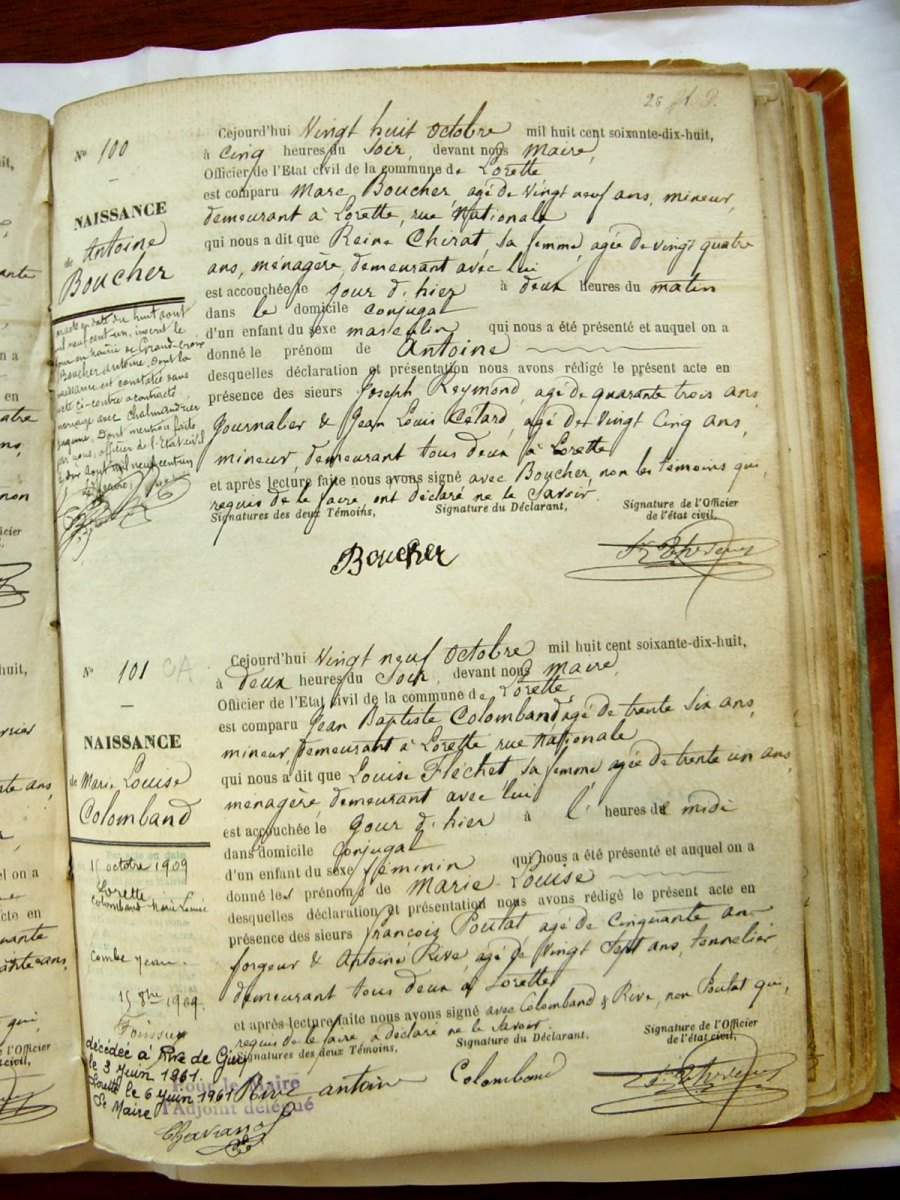 N° 100
NAISSANCE
de Antoine
Boucher
Cejourd'hui Vingt huit octobre mil huit cent soixante-dix-huit,
à Cinq heures du Soir, devant nous Maire,
Officier de l'Etat civil de la commune de Lorette
est comparu Marc Boucher, agé de vingt neuf ans, mineur,
demeurant à Lorette, rue Nationale
qui nous a dit que Reine Chirat, sa femme, agée de vingt quatre
ans, ménagère, demeurant avec lui
est accouchée le jour d'hier à deux heures du matin
dans le domicile conjugal
d'un enfant du sexe masculin qui nous a été présenté et auquel on a
donné le prénom de Antoine
desquelles déclaration et présentation nous avons rédigé le présent acte en
présence des sieurs Joseph Reymond, agé de quarante trois ans,
journalier & Jean Louis Célard, agé de Vingt Cinq ans,
mineur, demeurant tous deux à Lorette
et après lecture faite nous avons signé avec Boucher, non les témoins qui,
requis de le faire, ont déclaré ne le Savoir.
Signatures des deux Témoins, Signature du Déclarant, Signature de l'Officier
de l'état civil,
Boucher
N° 101
NAISSANCE
de Marie Louise
Colomband
15 octobre 1909
Lorette
Colomband Marie Louise
Combe Jean
15 8bre 1909.
décédée à Rive de Gier
le 3 Juin 1961.
Lorette le 6 Juin 1961
Le Maire
Pour le Maire
l'Adjoint délégué
Cejourd'hui Vingt neuf octobre mil huit cent soixante-dix-huit,
à deux heures du Soir, devant nous Maire,
Officier de l'Etat civil de la commune de Lorette,
est comparu Jean Baptiste Colomband agé de trente six ans,
mineur, demeurant à Lorette rue Nationale
qui nous a dit que Louise Fléchet sa femme agée de trente un ans,
ménagère, demeurant avec lui
est accouchée le jour d'hier à l' heures de midi
dans domicile conjugal
d'un enfant du sexe féminin qui nous a été présenté et auquel on a
donné les prénoms de Marie Louise
desquelles déclaration et présentation nous avons rédigé le présent acte en
présence des sieurs François Poulat agé de Cinquante an
forgeur & Antoine Rive agé de Vingt Sept ans, tonnelier
demeurant tous deux à Lorette
et après lecture faite nous avons signé avec Colomband & Rive, non Poulat qui,
requis de le faire a déclaré ne le savoir.
Signatures des deux Témoins, Signature du Déclarant, Signature de l'Officier
de l'état civil,
Rive antoine Colomband